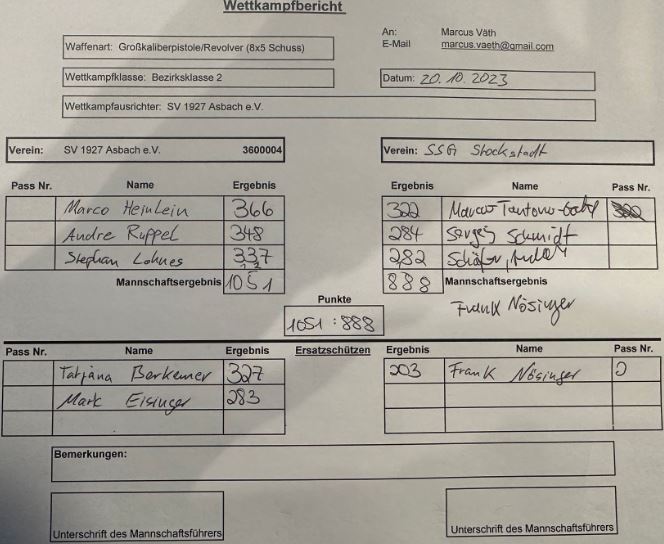 Wettkampfbericht
An: Marcus Väth
E-Mail marcus.vaeth@gmail.com
Waffenart: Großkaliberpistole/Revolver (8x5 Schuss)
Wettkampfklasse: Bezirksklasse 2
Datum: 20.10.2023
Wettkampfausrichter: SV 1927 Asbach e.V.
Verein: SV 1927 Asbach e.V. 3600004
Verein: SSG Stockstadt
Pass Nr. Name Ergebnis Ergebnis Name Pass Nr.
Marco Heinlein 366 322
Andre Ruppel 348 284 Sergej Schmidt
Stephan Lohnes 337 282
Mannschaftsergebnis 1051 888 Mannschaftsergebnis
Frank Nösinger
Punkte
1051 : 888
Pass Nr. Name Ergebnis Ersatzschützen Ergebnis Name Pass Nr.
Tatjana Berkemer 327 203 Frank Nösinger
Mark Eisinger 283
Bemerkungen:
Unterschrift des Mannschaftsführers
Unterschrift des Mannschaftsführers